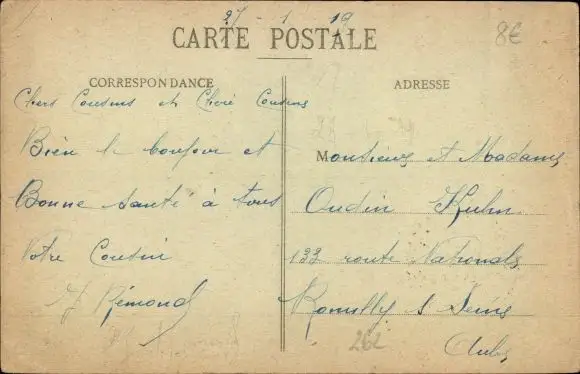 27 - 1 19
8€
CARTE POSTALE
CORRESPONDANCE
Chers Cousins et Chère Cousins
Bien le bonjour et
Bonne santé à tous
Votre Cousin
Rémond
ADRESSE
Monsieur et Madame
Oudin Kuhn
122 route Nationale
Romilly s Seine
Aube
262